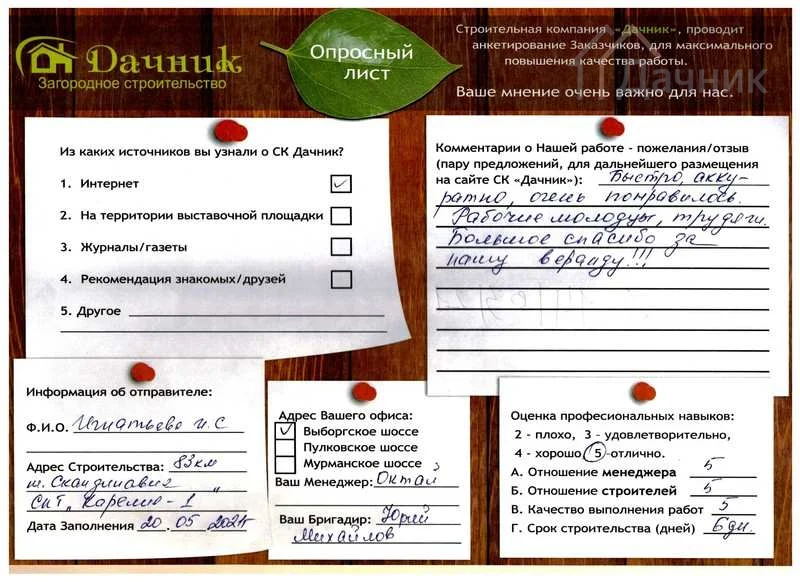 Дачник
Загородное строительство
Опросный
лист
Строительная компания «Дачник», проводит
анкетирование Заказчиков, для максимального
повышения качества работы.
Ваше мнение очень важно для нас.
Дачник
Из каких источников вы узнали о СК Дачник?
1. Интернет ✓
2. На территории выставочной площадки
3. Журналы/газеты
4. Рекомендация знакомых/друзей
5. Другое
Комментарии о Нашей работе - пожелания/отзыв
(пару предложений, для дальнейшего размещения
на сайте СК «Дачник»): Быстро, акку-
ратно, очень понравилось.
Рабочие молодцы, трудяги.
Большое спасибо за
нашу веранду!!!
Информация об отправителе:
Ф.И.О. Игнатьева И.С
Адрес Строительства: 83км
ш. Скандинавия
СНТ „Карелия-1"
Дата Заполнения 20.05.2024
Адрес Вашего офиса:
✓ Выборгское шоссе
Пулковское шоссе
Мурманское шоссе
Ваш Менеджер: Октай
Ваш Бригадир: Юрий
Михайлов
Оценка професиональных навыков:
2 - плохо, 3 - удовлетворительно,
4 - хорошо, 5 -отлично.
А. Отношение менеджера 5
Б. Отношение строителей 5
В. Качество выполнения работ 5
Г. Срок строительства (дней) 6дн.